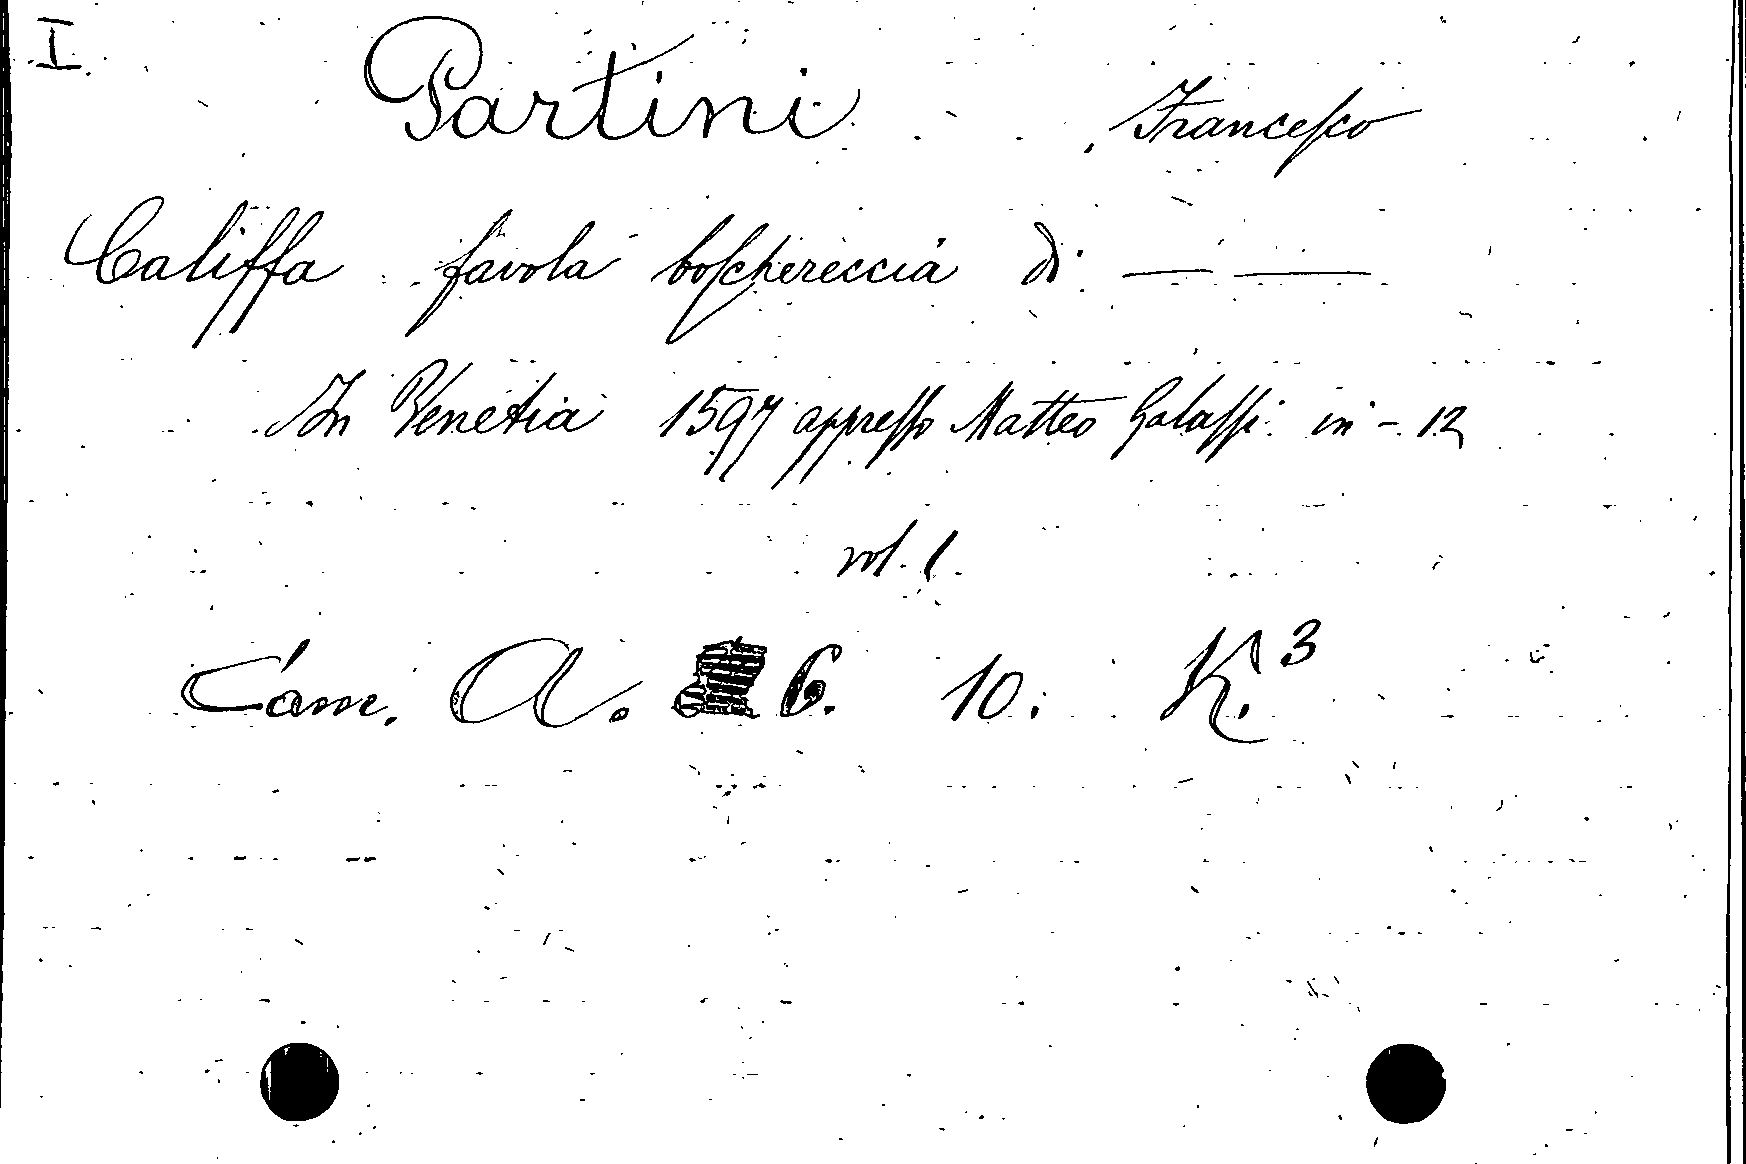 I.
Partini , Francesco
Califfa favola boschereccia di — —
In Venetia 1597 appresso Matteo Galassi in - 12
vol. 1.
Cam. A. 6. 10. K.³